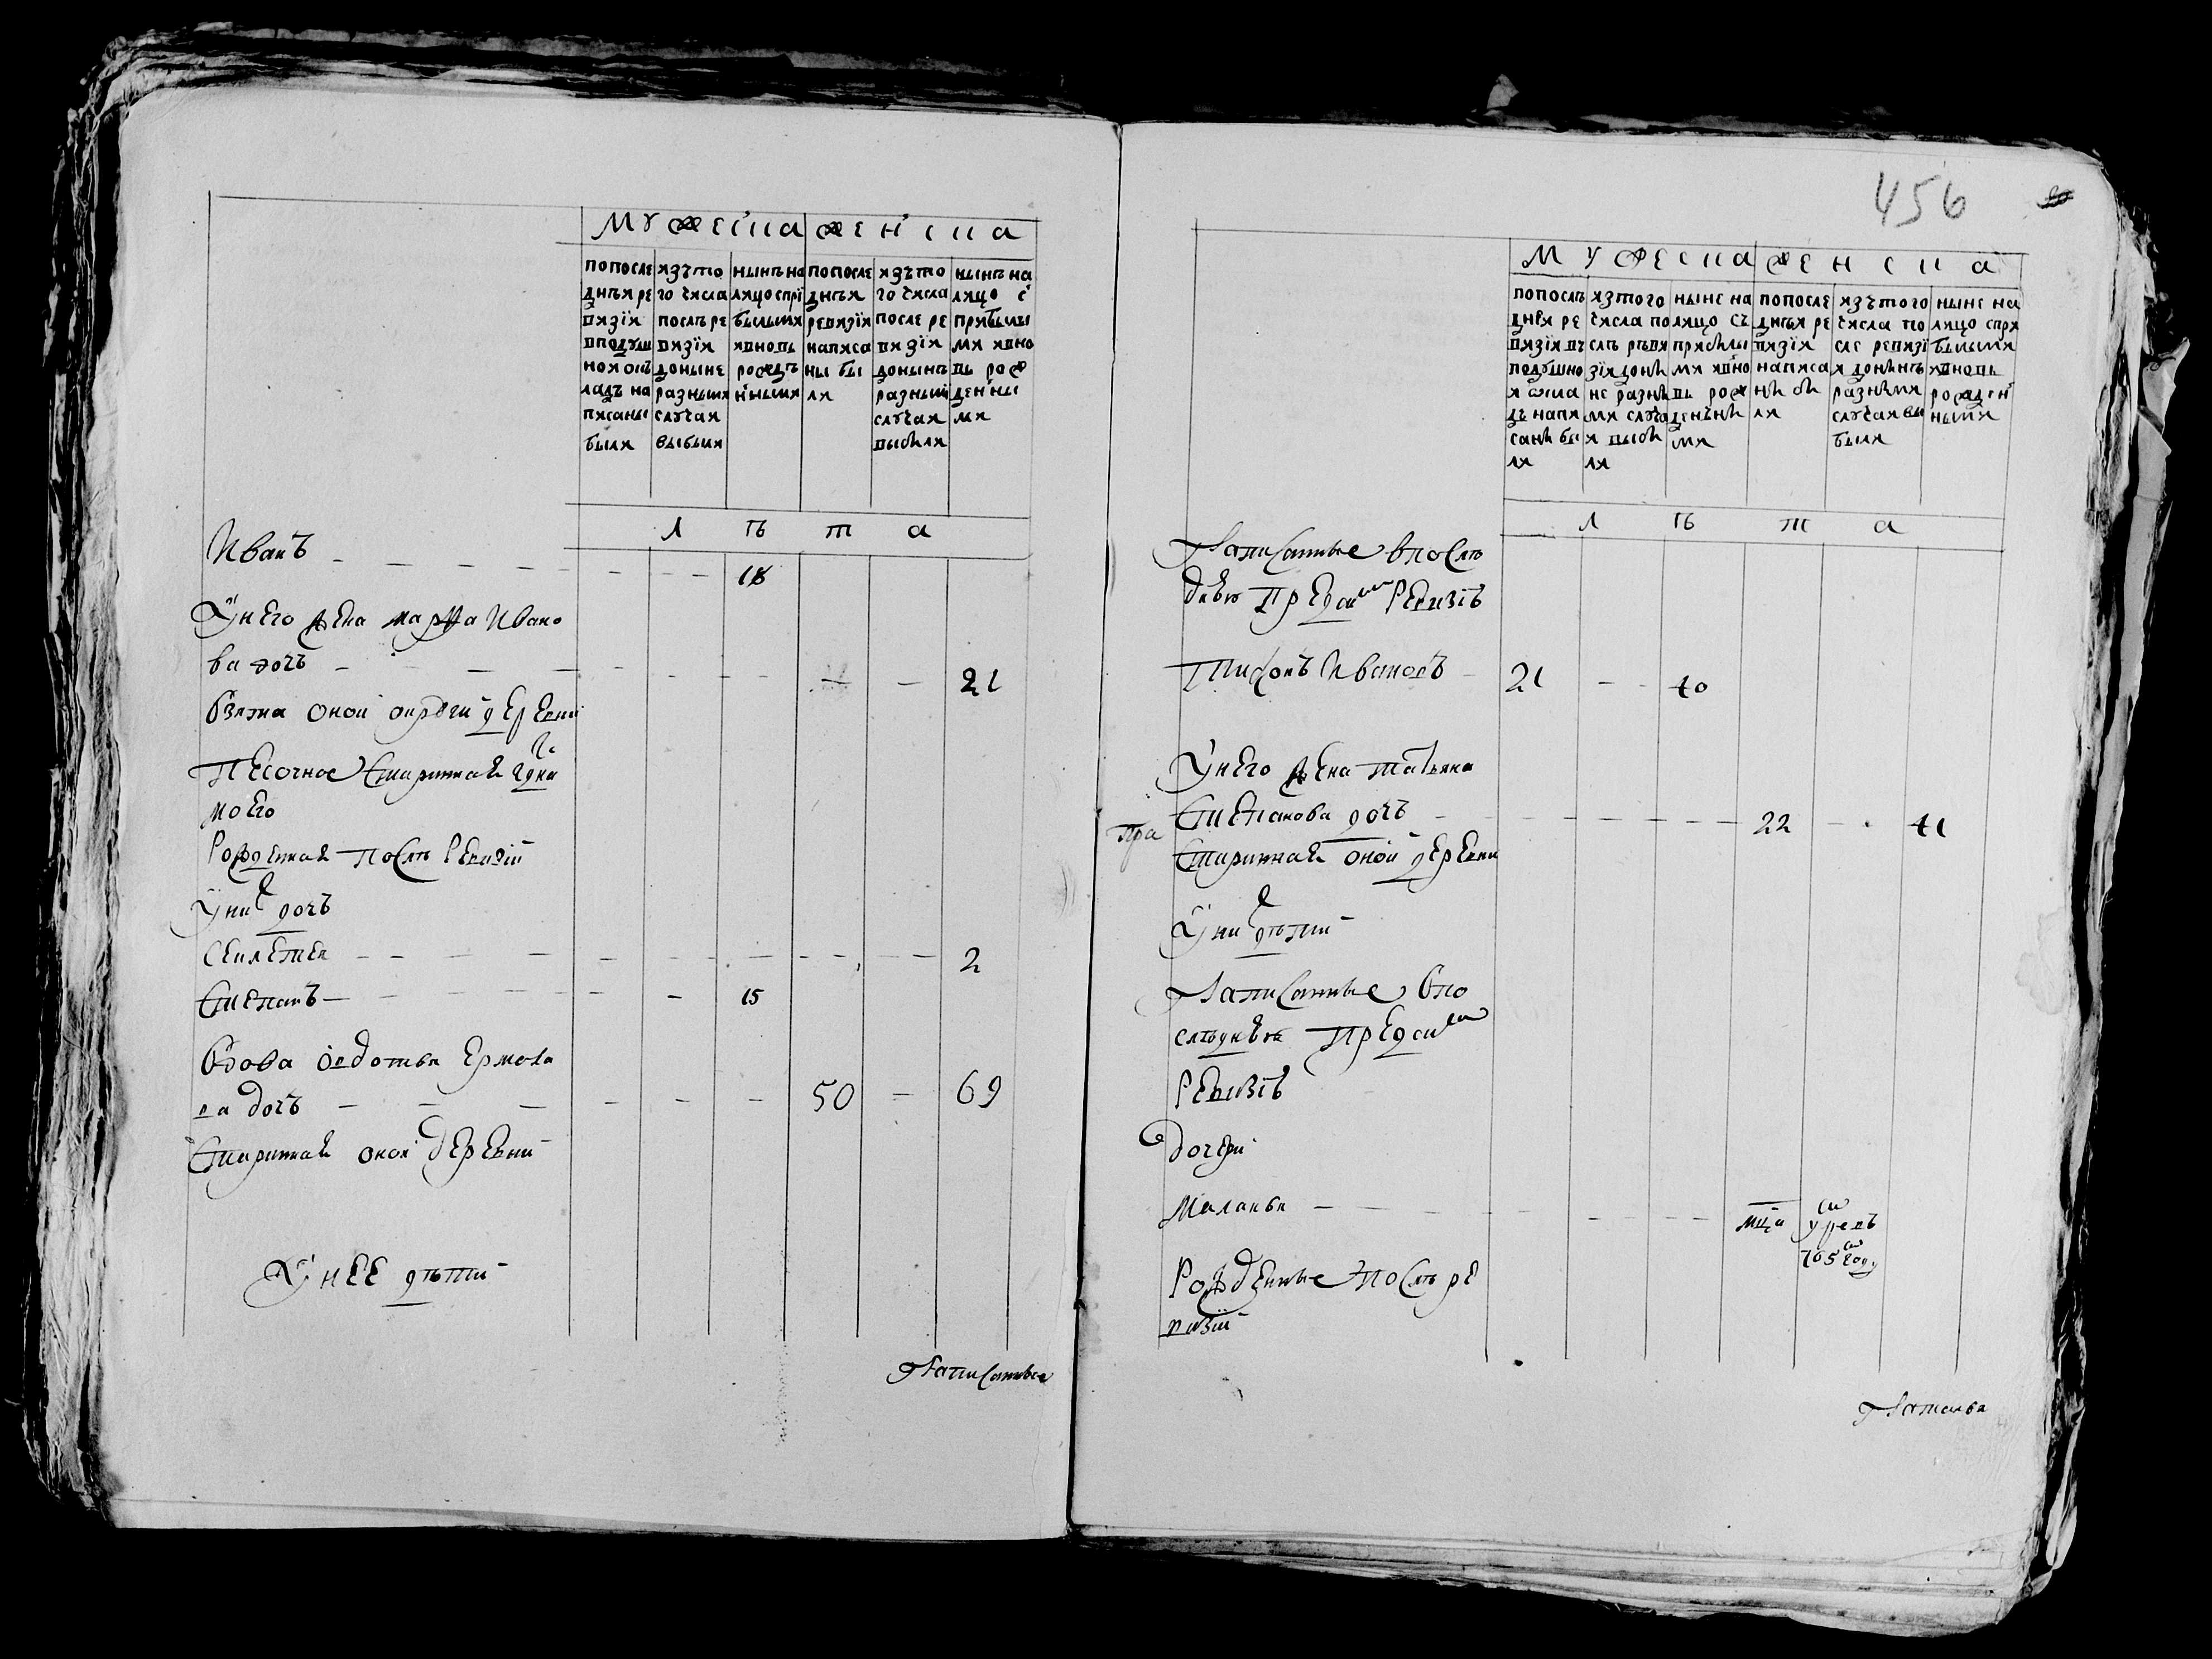 МУЖЕСКА ЖЕНСКА
попосле
днѣи ре
визiи
вподуш
номокъ
ладъ на
писаны
были
изъто
го числа
послѣ ре
визiи
доныне
разными
случаи
выбыли
нынѣ на
лицо спри
былыми
ивновь
рожде
нными
попосле
днѣи
ревизiи
написа
ны бы
ли
изъто
го числа
после ре
визiи
донынѣ
разными
случаи
выбыли
нынѣ на
лицо с
прибылы
ми ивно
вь рож
денны
ми
Л Ѣ Т А
Иванъ 18
У него жена марфа Ивано
ва дочь 21
Взята оной округи деревни
Песочное старинная гдна
моего
Рожденная после ревизiи
У них дочь
Степанъ 15
Вдова Федотья Ермола
ва дочь 50 69
Старинная оной деревни
У нее дѣти
Написанные
456
МУЖЕСКА ЖЕНСКА
попослѣ
дней ре
визiи въ
подушно
и окла
дъ напи
саны бы
ли
изтого
числа по
слѣ реви
зiи доны
не разны
ми случа
и выбы
ли
ныне на
лицо съ
прибылы
ми ивно
вь рож
денны
ми
попосле
днѣи ре
визiи
написа
ны бы
ли
изътого
числа по
сле ревизi
и донынѣ
разными
случаи вы
были
ныне на
лицо спри
былыми
ивновь
рожден
ными
Л Ѣ Т А
Написанные в послѣ
днею пред сим ревизiю
Тихонъ Ивановъ 21 40
У него жена Татьяна
Степанова дочь 22 41
Старинная оной деревни
У них дѣти
Написанные в по
следнею пред сим
ревизiю
дочери
Маланья мца
умре въ
765 году
Рожденные послѣ ре
визiи
Наталья